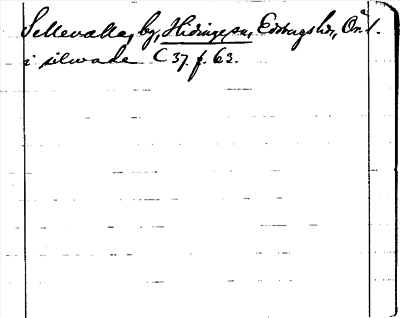 Sellevalla, by, Hidinge, sn, Edsbergs hd, Ör. l.
i silwade C 37. f. 63.